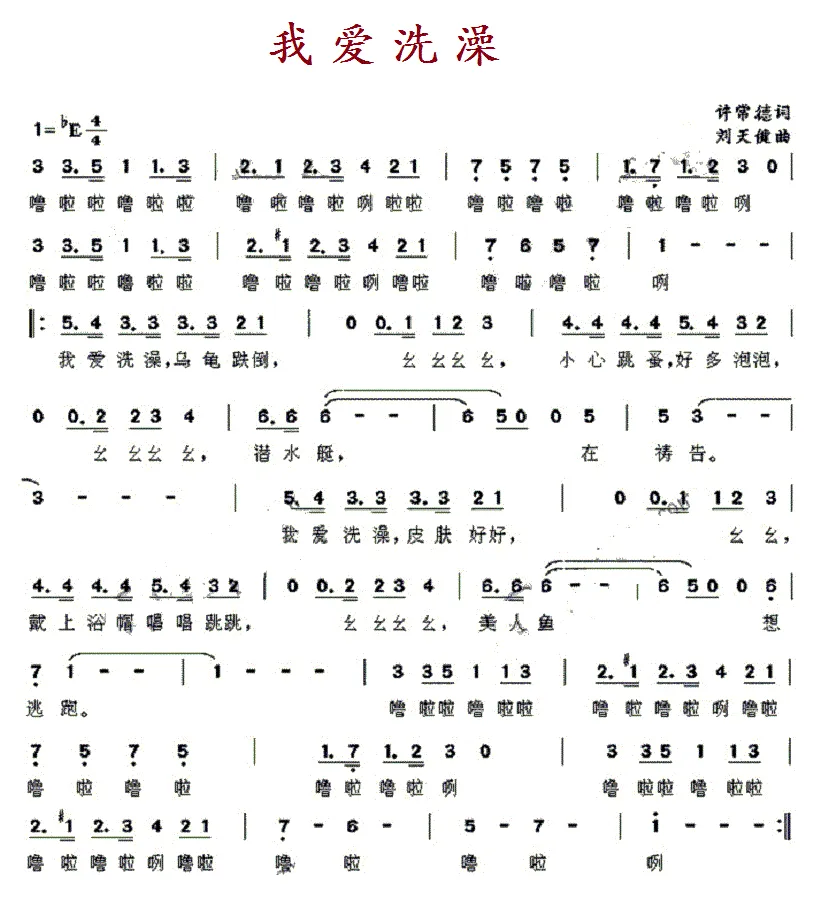 我爱洗澡
1=♭E 4/4
许常德词
刘天健曲
3 3.5 1 1.3 | 2.1 2.3 4 21 | 7 5 7 5 | 1.7 1.2 3 0 |
噜啦啦噜啦啦 噜啦噜啦咧啦啦 噜啦噜啦 噜啦噜啦咧
3 3.5 1 1.3 | 2.#1 2.3 4 21 | 7 6 5 7 | 1 - - - |
噜啦啦噜啦啦 噜啦噜啦咧噜啦 噜啦噜啦 咧
‖: 5.4 3.3 3.3 21 | 0 0.1 12 3 | 4.4 4.4 5.4 32 |
我爱洗澡,乌龟跌倒, 幺幺幺幺, 小心跳蚤,好多泡泡,
0 0.2 23 4 | 6.6 6 - - | 6 50 0 5 | 5 3 - - |
幺幺幺幺, 潜水艇, 在祷告。
3 - - - | 5.4 3.3 3.3 21 | 0 0.1 12 3 |
我爱洗澡,皮肤好好, 幺幺,
4.4 4.4 5.4 32 | 0 0.2 23 4 | 6.6 6 - - | 6 50 0 6 |
戴上浴帽唱唱跳跳, 幺幺幺幺, 美人鱼 想
7 1 - - | 1 - - - | 3 35 1 13 | 2.#1 2.3 4 21 |
逃跑。 噜啦啦噜啦啦 噜啦噜啦咧噜啦
7 5 7 5 | 1.7 1.2 3 0 | 3 35 1 13 |
噜啦噜啦 噜啦噜啦咧 噜啦啦噜啦啦
2.#1 2.3 4 21 | 7 - 6 - | 5 - 7 - | i - - - :‖
噜啦噜啦咧噜啦 噜啦 噜啦 咧